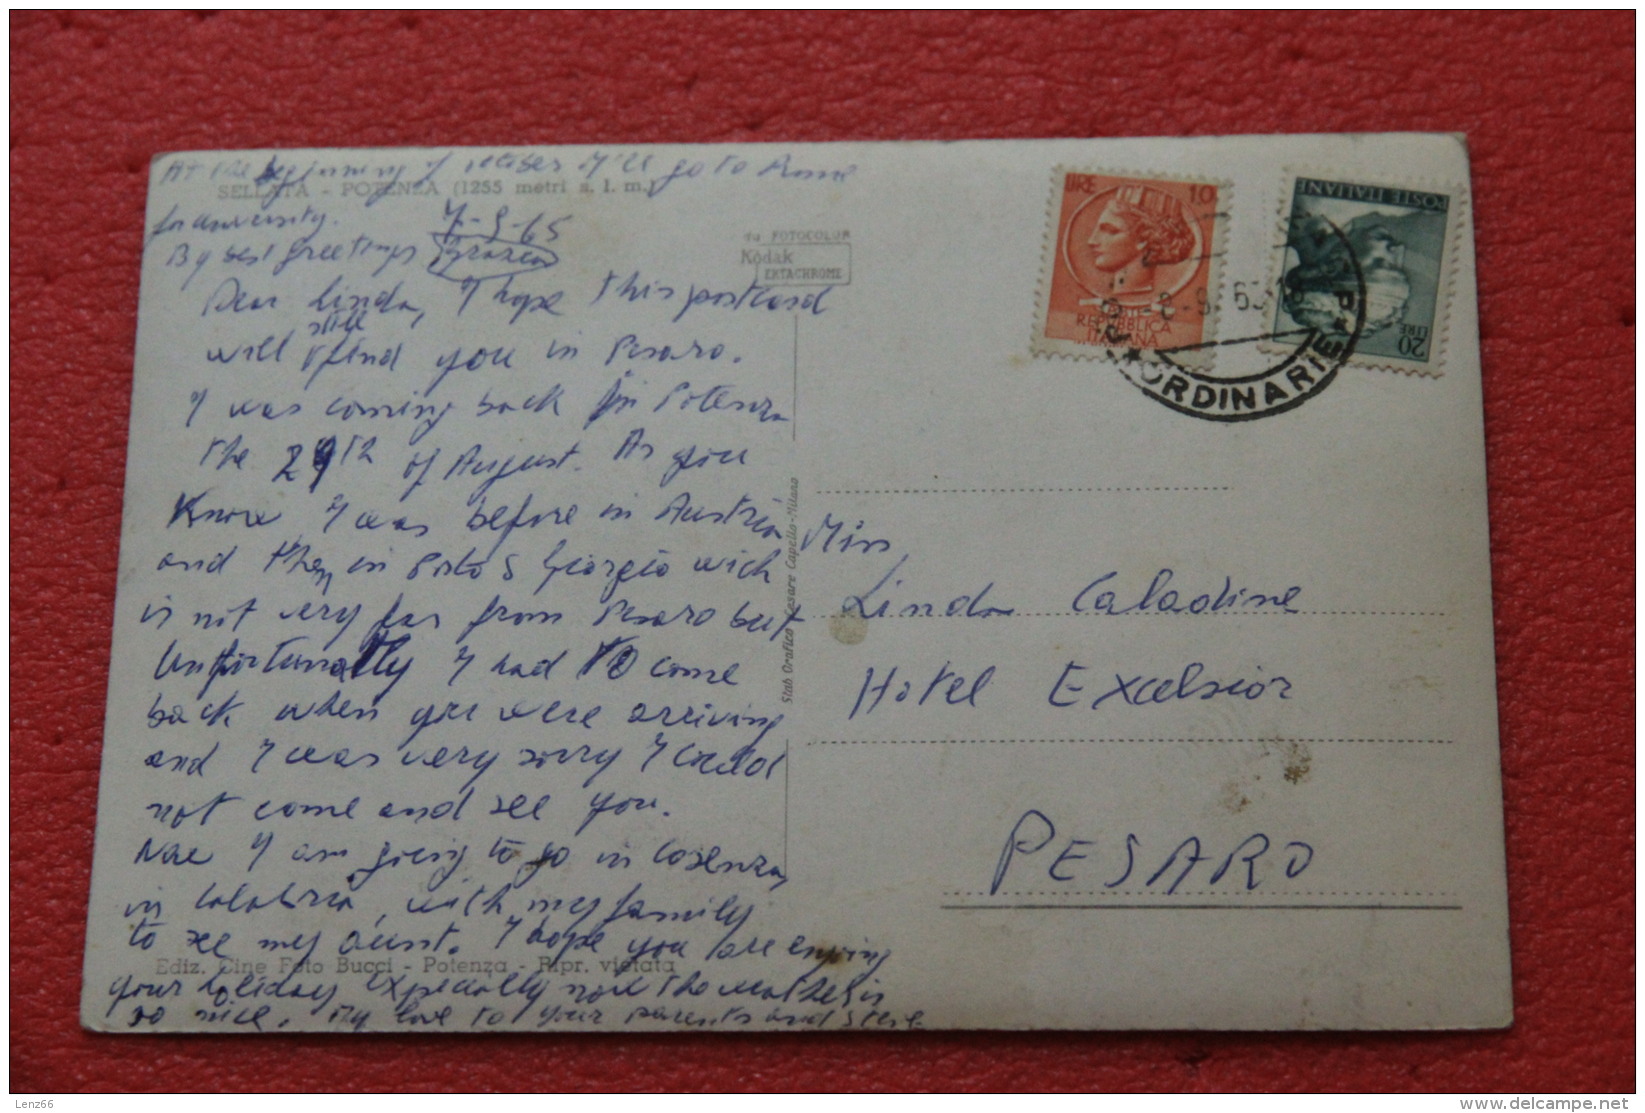 At the beginning of october I'll go to Rome
SELLATA - POTENZA (1255 metri s. l. m.)
for university. 7-9-65
By best greetings
Dear Linda, I hope this postcard
will still find you in Pesaro.
I was coming back in Potenza
the 29th of August. As you
know I was before in Austria
and then in Porto S Giorgio wich
is not very far from Pesaro but
unfortunatly I had to come
back when you were arriving
and I was very sorry I could
not come and see you.
Now I am going to go in Cosenza,
in Calabria, with my family
to see my aunt. I hope you are enjoing
Ediz. Cine Foto Bucci - Potenza - Ripr. vietata
your holiday expecially now the weather is
so nice. My love to your parents and Steve
Stab Grafico Cesare Capello-Milano
da FOTOCOLOR
Kodak
EKTACHROME
LIRE 10
REPUBBLICA
ITALIANA
POSTE ITALIANE
LIRE 20
8-9
ORDINARIE
Miss,
Linda Caladine
Hotel Excelsior
PESARO
Lenz66
www.delcampe.net